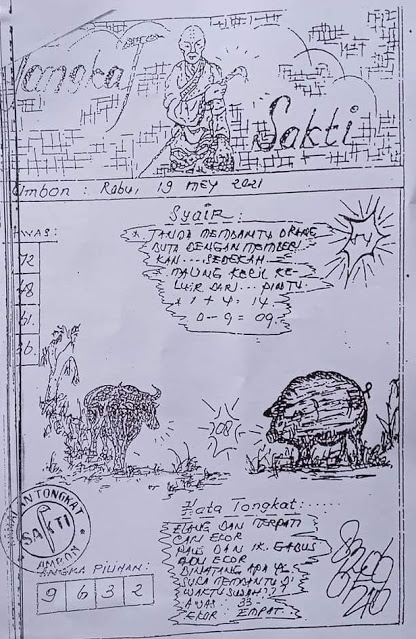 Tongkat
Sakti
Ambon : Rabu, 19 MEY 2021
WAS:
72
48
61.
36.
Syair:
* JANDA MEMBANTU ORANG
BUTA DENGAN MEMBERI
KAN.... SEDEKAH
* MALING KECIL KE-
LUAR DARI.... PINTU.
* 1 + 4 = 14.
0 - 9 = 09.
08
Kata Tongkat......
ELANG DAN MERPATI
CARI EKOR
PAUS DAN IK. GABUS
ADU EKOR
BINATANG APA YG
SUKA MEMBANTU DI
WAKTU SUSAH???
AWAS : 33
EKOR EMPAT.
TONGKAT
SAKTI
AMBON
ANGKA PILIHAN:
9 6 3 2